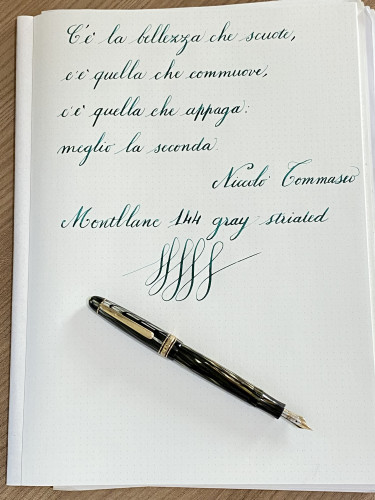 C'è la bellezza che scuote,
c'è quella che commuove,
c'è quella che appaga:
meglio la seconda
Niccolò Tommaseo
Montblanc 144 gray striated